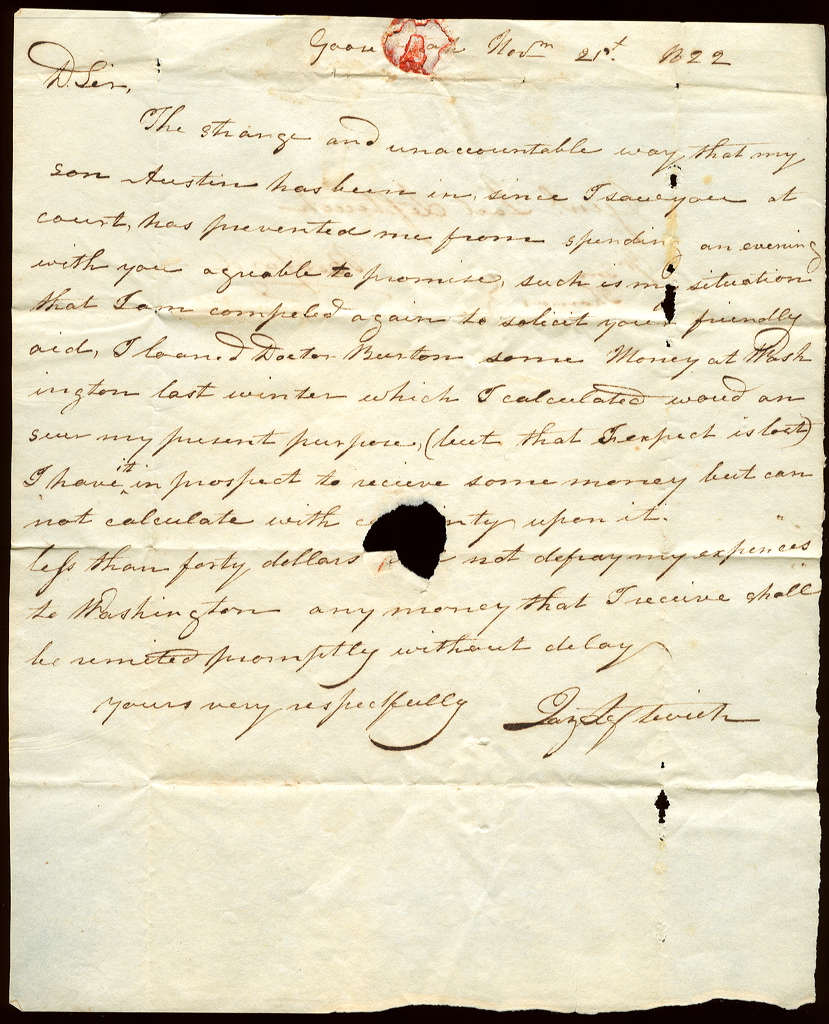 Goose Novm 21st 1822
D. Sir,
The strange and unaccountable way that my
son Austin has been in, since I saw you at
court, has prevented me from spending an evening
with you agreable to promise, such is my situation
that I am compeled again to solicit your friendly
aid, I loaned Doctor Burton some Money at Wash
ington last winter which I calculated woud an
swer my present purpose, (but that I expect is lost)
I have it in prospect to recieve some money but can
not calculate with c nty upon it.
less than forty dollars not defray my expences
to Washington any money that I receive shall
be remited promptly without delay
yours very respectfully Jaz Leftwich